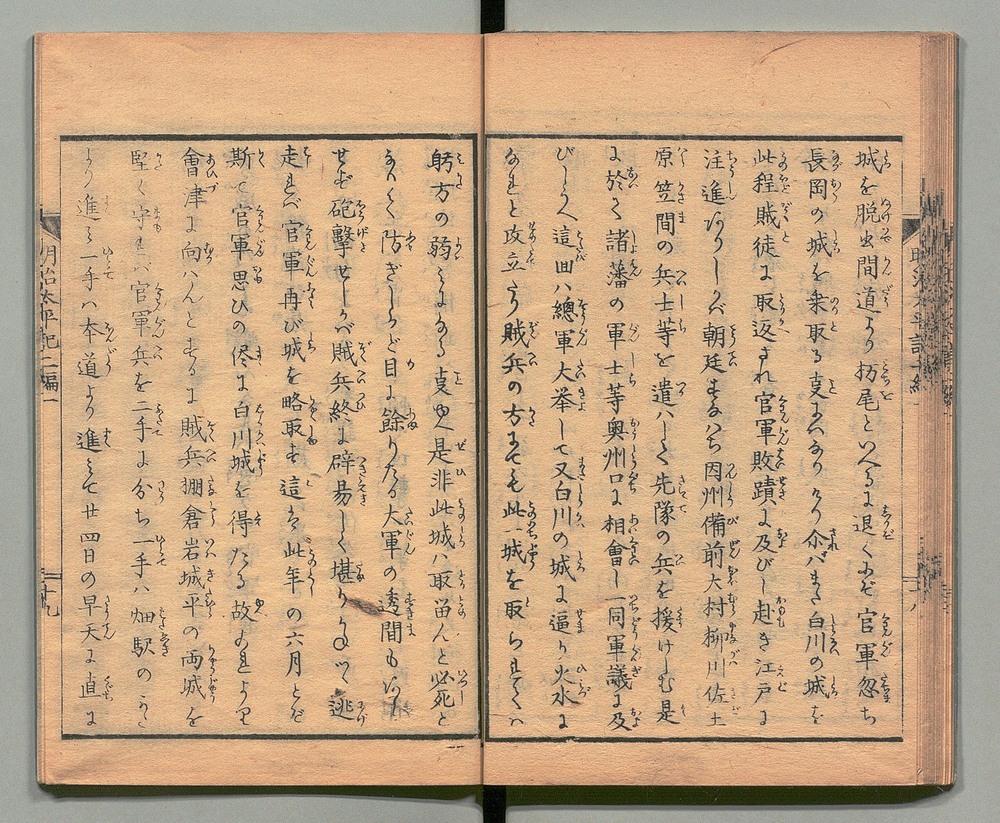 城を脱出間道より栃尾といへるに退くにぞ官軍忽ち
長岡の城を乗取る事になりけり介バまた白川の城を
此程賊徒に取返され官軍敗蹟に及びし赴き江戸に
注進ありしバ朝廷すなハち因州備前大村柳川佐土
原笠間の兵士等を遣ハして先隊の兵を援けしむ是
に於て諸藩の軍士等奥州口に相會し一同軍議に及
びしうへ這回ハ總軍大挙して又白川の城に逼り火水に
なれと攻立たり賊兵の方にても此城を取られてハ
躬方の弱となる事ゆへ是非此城ハ取留んと必死と
なりて防ぎしかど目に餘りたる大軍の透間もなく
せめ砲撃せしかバ賊兵終に辟易して堪りかねツヽ逃
走れバ官軍再び城を略取す這ハ此年の六月とぞ
斯て官軍思ひの侭に白川城を得たる故これより
會津に向ハんとするに賊兵棚倉岩城平の両城を
堅く守れバ官軍兵を二手に分ち一手ハ畑駅の
より進ミ一手ハ本道より進ミて廿四日の早天に直に
明治太平記二編一
十九